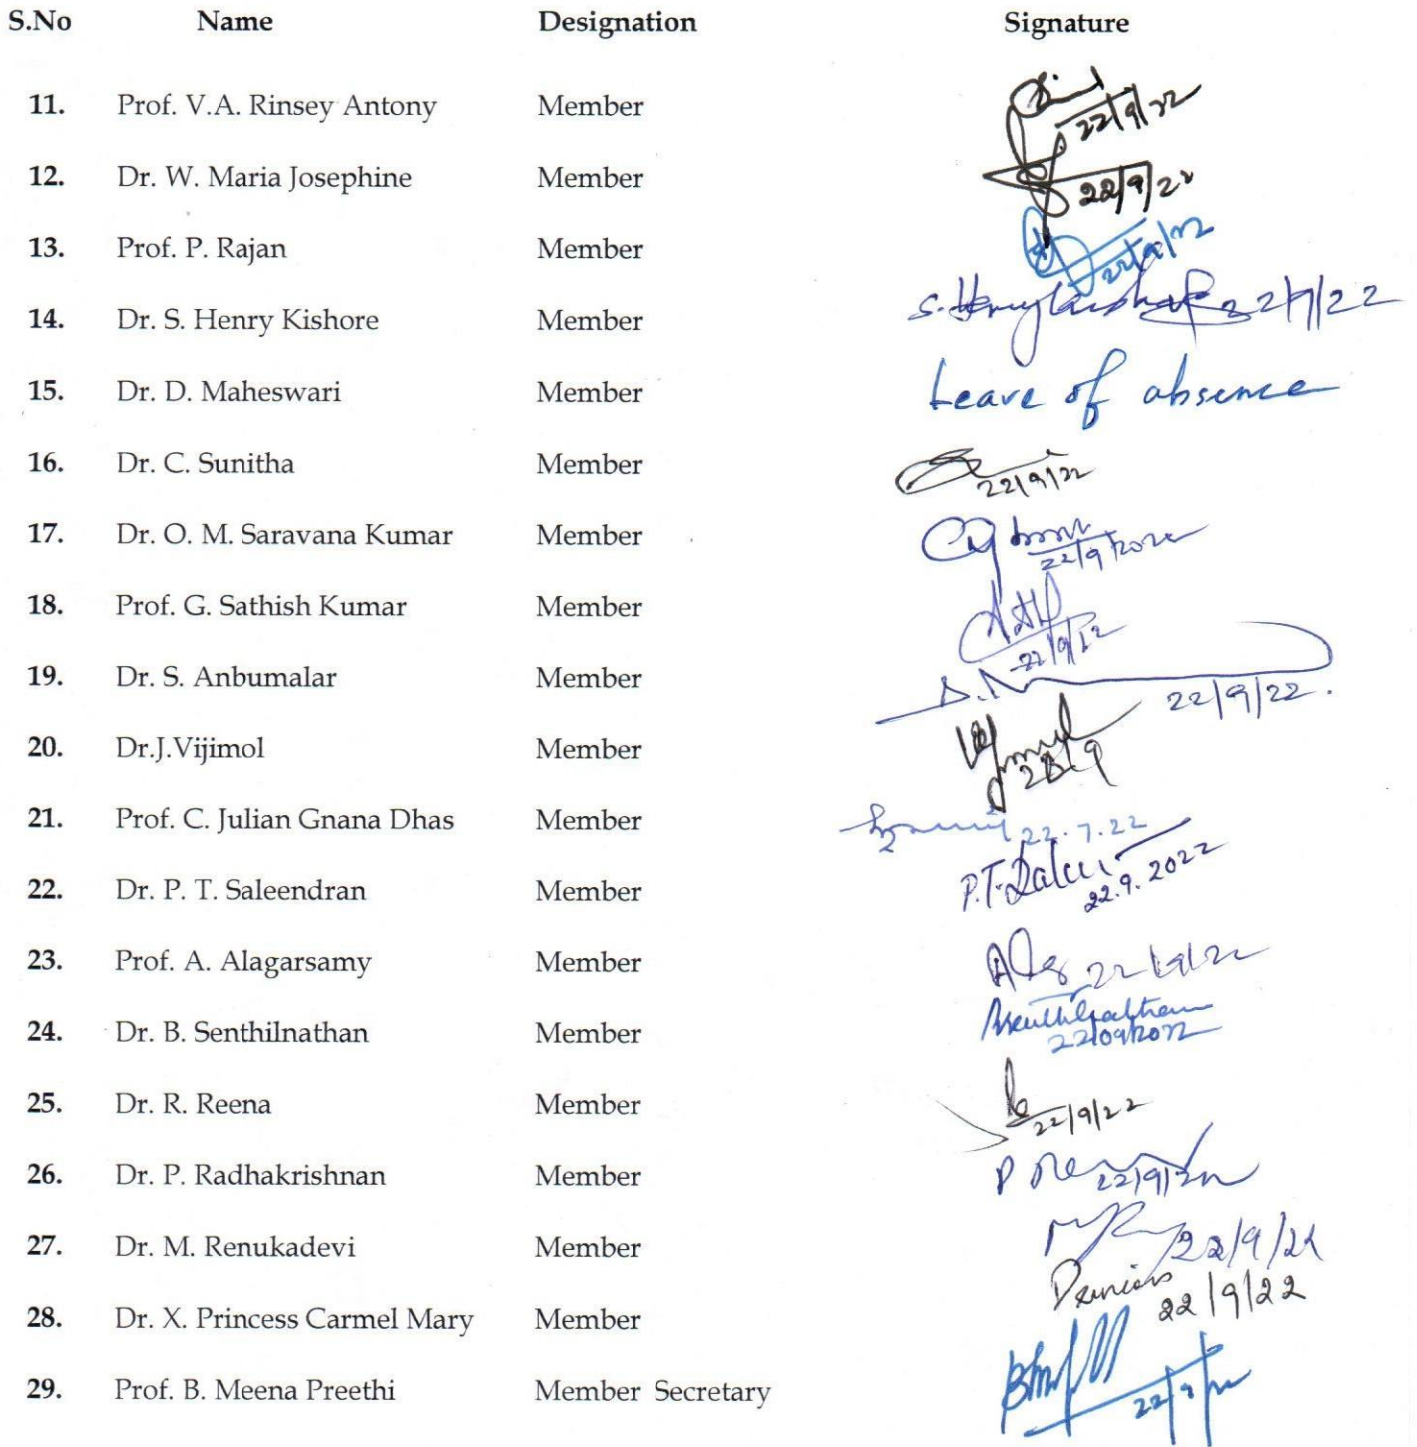 S.No Name Designation Signature
11. Prof. V.A. Rinsey Antony Member 22/9/22
12. Dr. W. Maria Josephine Member 22/9/22
13. Prof. P. Rajan Member 22/9/22
14. Dr. S. Henry Kishore Member S. Henry Kishore 22/9/22
15. Dr. D. Maheswari Member Leave of absence
16. Dr. C. Sunitha Member 22/9/22
17. Dr. O. M. Saravana Kumar Member 22/9/2022
18. Prof. G. Sathish Kumar Member 22/9/22
19. Dr. S. Anbumalar Member 22/9/22.
20. Dr.J.Vijimol Member
21. Prof. C. Julian Gnana Dhas Member 22.9.22
22. Dr. P. T. Saleendran Member P.T. 22.9.2022
23. Prof. A. Alagarsamy Member 22/9/22
24. Dr. B. Senthilnathan Member 22/09/2022
25. Dr. R. Reena Member 22/9/22
26. Dr. P. Radhakrishnan Member 22/9/22
27. Dr. M. Renukadevi Member 22/9/22
28. Dr. X. Princess Carmel Mary Member 22/9/22
29. Prof. B. Meena Preethi Member Secretary 22/9/22